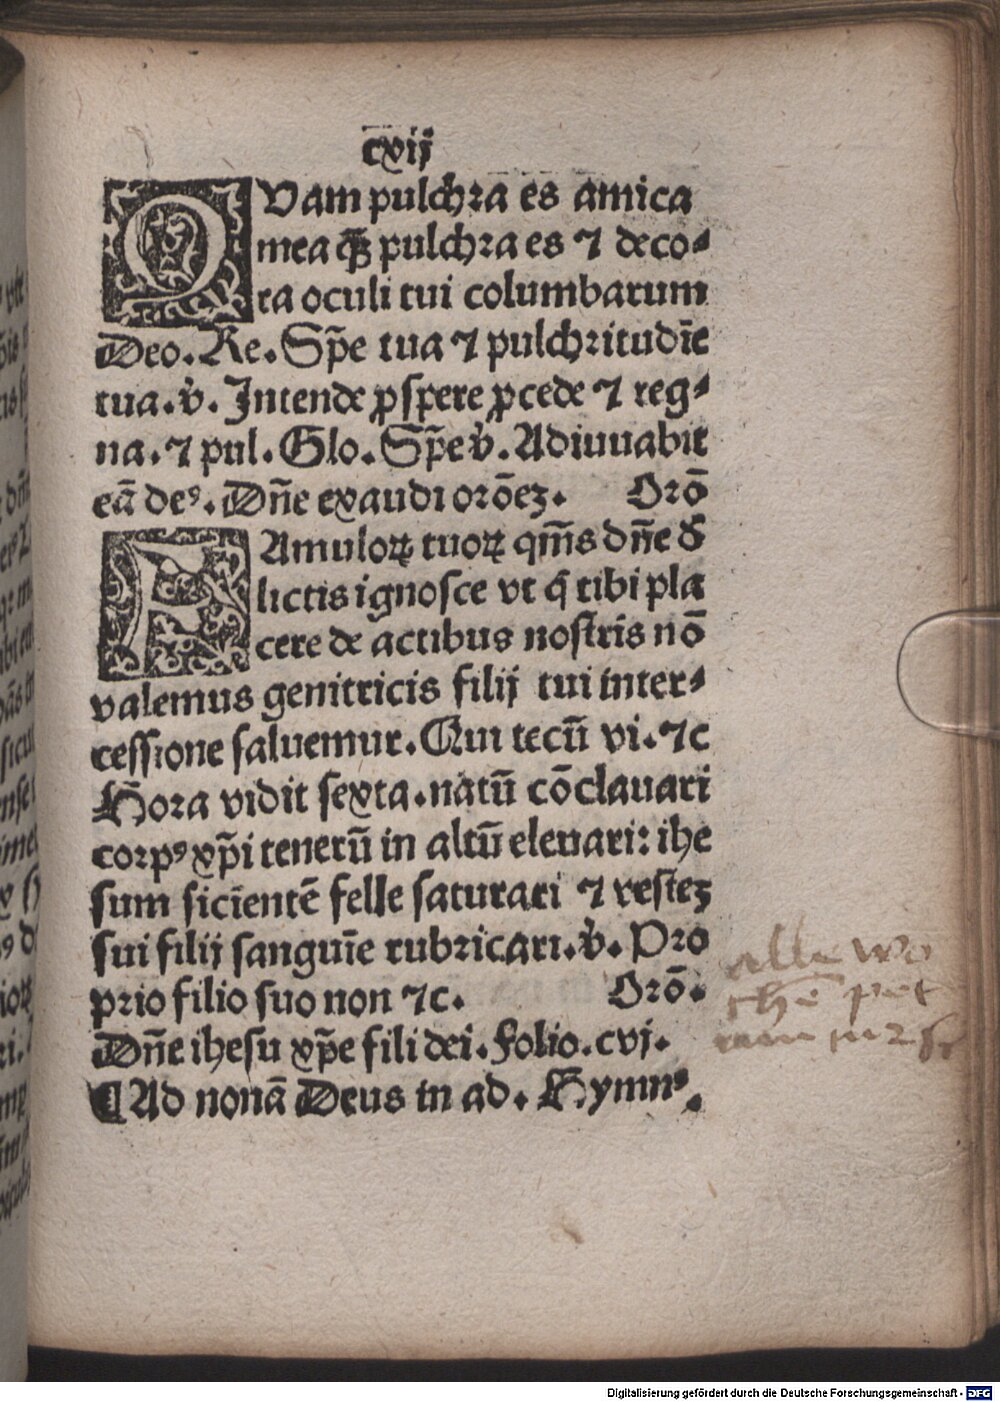 cxij
QVam pulchra es amica
mea q̃ꝫ pulchra es ⁊ deco⸗
ra oculi tui columbarum
Deo. Re. Sp̃e tua ⁊ pulchritudīe
tua. v̾. Intende ꝓspere ꝓcede ⁊ reg⸗
na. ⁊ pul. Glo. Sp̃e v̾. Adiuuabit
eā deꝰ. Dn̄e exaudi orōeꝫ. Orō
FAmuloꝝ tuoꝝ qm̄s dn̄e d̾
lictis ignosce vt q̄ tibi pla
cere de actibus nostris nō
valemus genitricis filij tui inter⸗
cessione saluemur. Qui tecū vi. ⁊c
Hora vidit sexta. natū cōclauari
corpꝰ xp̄i tenerū in altū eleuari: ihe
sum siciētē felle saturari ⁊ vesteꝫ
sui filij sanguīe rubricari. v̾. Pro
prio filio suo non ⁊c. Orō.
Dn̄e ihesu xp̄e fili dei. Folio. cvj.
¶ Ad nonā Deus in ad. Hymnꝰ.
Digitalisierung gefördert durch die Deutsche Forschungsgemeinschaft - DFG